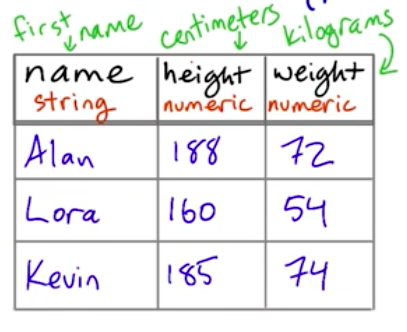 first name centimeters kilograms
name height weight
string numeric numeric
Alan 188 72
Lora 160 54
Kevin 185 74